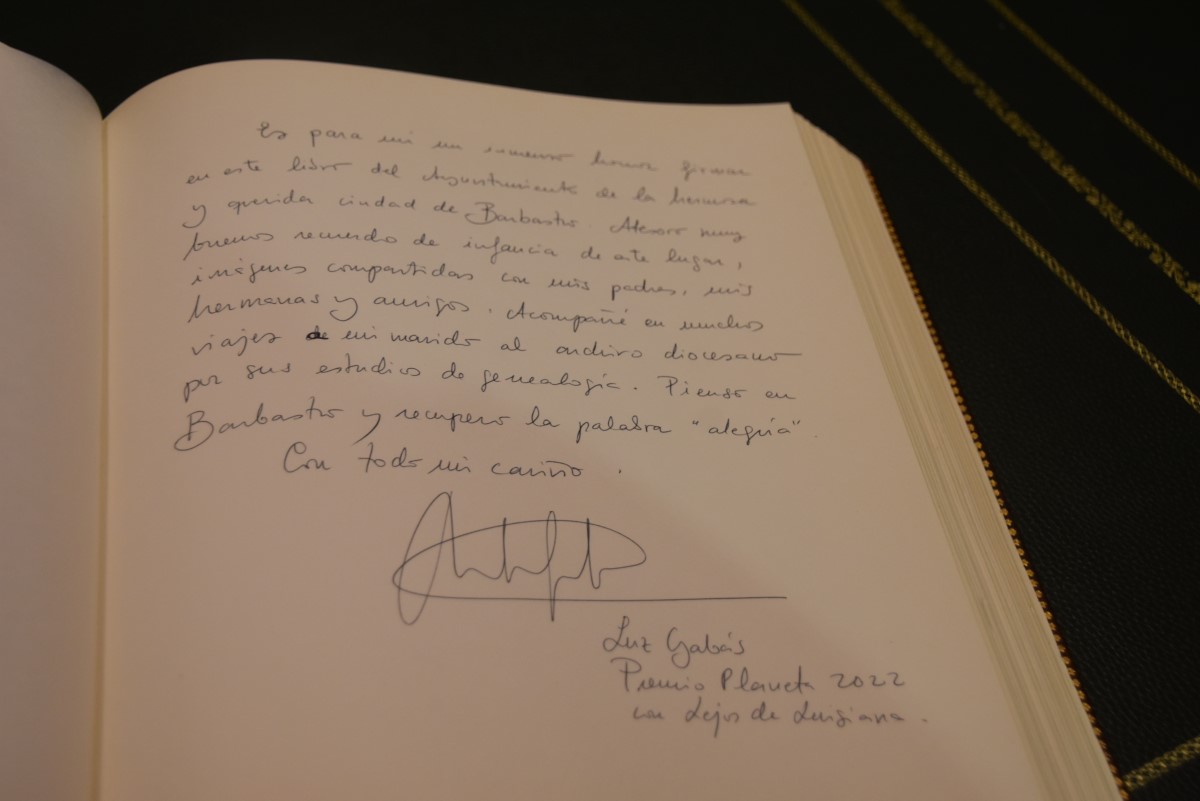 Es para mi un inmenso honor firmar
en este libro del Ayuntamiento de la hermosa
y querida ciudad de Barbastro. Atesoro muy
buenos recuerdo de infancia de este lugar,
imágenes compartidas con mis padres, mis
hermanas y amigos. Acompañé en muchos
viajes a mi marido al archivo diocesano
por sus estudios de genealogía. Pienso en
Barbastro y recupero la palabra "alegría".
Con todo mi cariño.
Luz Gabás
Premio Planeta 2022
con Lejos de Luisiana.